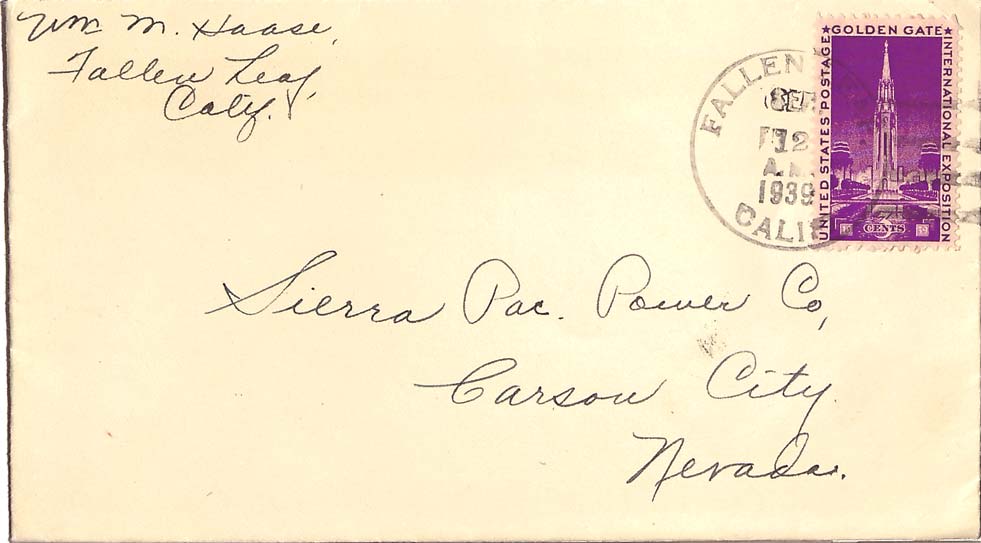 Wm M. Haase,
Fallen Leaf,
Calif.
FALLEN
SEP
12
A.M.
1939
CALIF
UNITED STATES POSTAGE ★ GOLDEN GATE ★ INTERNATIONAL EXPOSITION
3
CENTS
Sierra Pac. Power Co,
Carson City
Nevada.